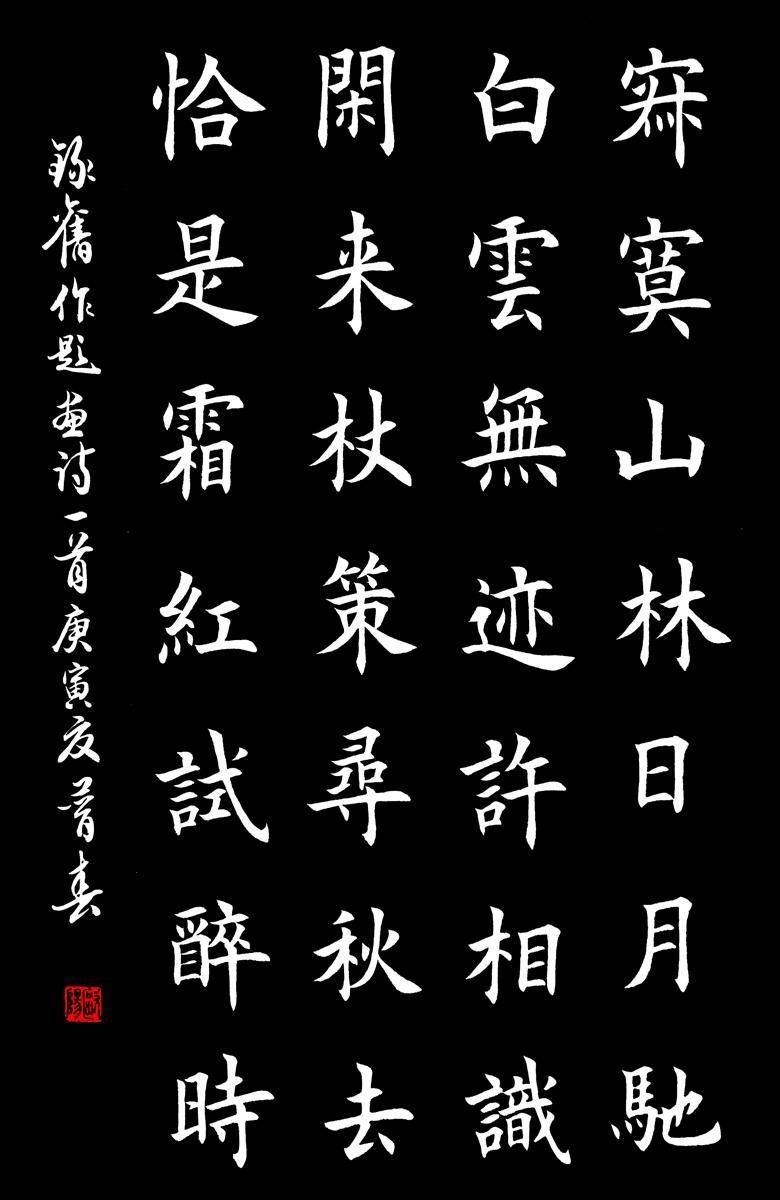 寂寞山林日月馳
白雲無迹許相識
閑来杖策尋秋去
恰是霜紅試醉時
録舊作題畫詩一首庚寅夏曾春